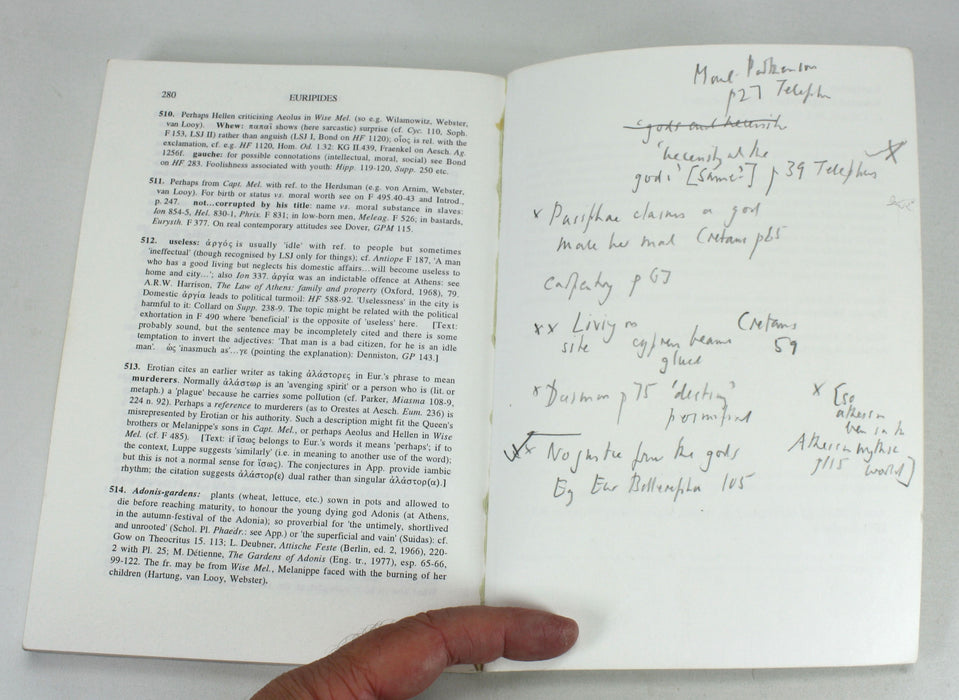 280
EURIPIDES
510. Perhaps Hellen criticising Aeolus in Wise Mel. (so e.g. Wilamowitz, Webster,
van Looy). Whew: παπαῖ shows (here sarcastic) surprise (cf. Cyc. 110, Soph.
F 153, LSJ II) rather than anguish (LSJ I, Bond on HF 1120); οἷος is rel. with the
exclamation, cf. e.g. HF 1120, Hom. Od. 1.32: KG II.439, Fraenkel on Aesch. Ag.
1256f. gauche: for possible connotations (intellectual, moral, social) see Bond
on HF 283. Foolishness associated with youth: Hipp. 119-120, Supp. 250 etc.
511. Perhaps from Capt. Mel. with ref. to the Herdsman (e.g. von Arnim, Webster,
van Looy). For birth or status vs. moral worth see on F 495.40-43 and Introd.,
p. 247. not...corrupted by his title: name vs. moral substance in slaves:
Ion 854-5, Hel. 830-1, Phrix. F 831; in low-born men, Meleag. F 526; in bastards,
Eurysth. F 377. On real contemporary attitudes see Dover, GPM 115.
512. useless: ἀργός is usually 'idle' with ref. to people but sometimes
'ineffectual' (though recognised by LSJ only for things); cf. Antiope F 187, 'A man
who has a good living but neglects his domestic affairs...will become useless to
home and city...'; also Ion 337. ἀργία was an indictable offence at Athens: see
A.R.W. Harrison, The Law of Athens: family and property (Oxford, 1968), 79.
Domestic ἀργία leads to political turmoil: HF 588-92. 'Uselessness' in the city is
harmful to it: Collard on Supp. 238-9. The topic might be related with the political
exhortation in F 490 where 'beneficial' is the opposite of 'useless' here. [Text:
probably sound, but the sentence may be incompletely cited and there is some
temptation to invert the adjectives: 'That man is a bad citizen, for he is an idle
man'. ὡς 'inasmuch as'...γε (pointing the explanation): Denniston, GP 143.]
513. Erotian cites an earlier writer as taking ἀλάστορες in Eur.'s phrase to mean
murderers. Normally ἀλάστωρ is an 'avenging spirit' or a person who is (lit. or
metaph.) a 'plague' because he carries some pollution (cf. Parker, Miasma 108-9,
224 n. 92). Perhaps a reference to murderers (as to Orestes at Aesch. Eum. 236) is
misrepresented by Erotian or his authority. Such a description might fit the Queen's
brothers or Melanippe's sons in Capt. Mel., or perhaps Aeolus and Hellen in Wise
Mel. (cf. F 485). [Text: if ἴσως belongs to Eur.'s words it means 'perhaps'; if to
the context, Luppe suggests 'similarly' (i.e. in meaning to another use of the word);
but this is not a normal sense for ἴσως). The conjectures in App. provide iambic
rhythm; the citation suggests ἀλάστορ(ε) dual rather than singular ἀλάστορ(α).]
514. Adonis-gardens: plants (wheat, lettuce, etc.) sown in pots and allowed to
die before reaching maturity, to honour the young dying god Adonis (at Athens,
in the autumn-festival of the Adonia); so proverbial for 'the untimely, shortlived
and unrooted' (Schol. Pl. Phaedr.: see App.) or 'the superficial and vain' (Suidas): cf.
Gow on Theocritus 15. 113; L. Deubner, Attische Feste (Berlin, ed. 2, 1966), 220-
2 with Pl. 25; M. Détienne, The Gardens of Adonis (Eng. tr., 1977), esp. 65-66,
99-122. The fr. may be from Wise Mel., Melanippe faced with the burning of her
children (Hartung, van Looy, Webster).
p27 Teleph
'necessity at the
gods' [Same?] p 39 Telephus
x Pasiphae claims a god
made her mad Cretans p65
carpentry p 67
xx Living on Cretans
site cypress beams 59
glued
x Daimon p 75 'destiny'
x [so
Athens in
x No justice from the gods
Athens in mythic
p115 world]
Eg Eur Bellerophon 105